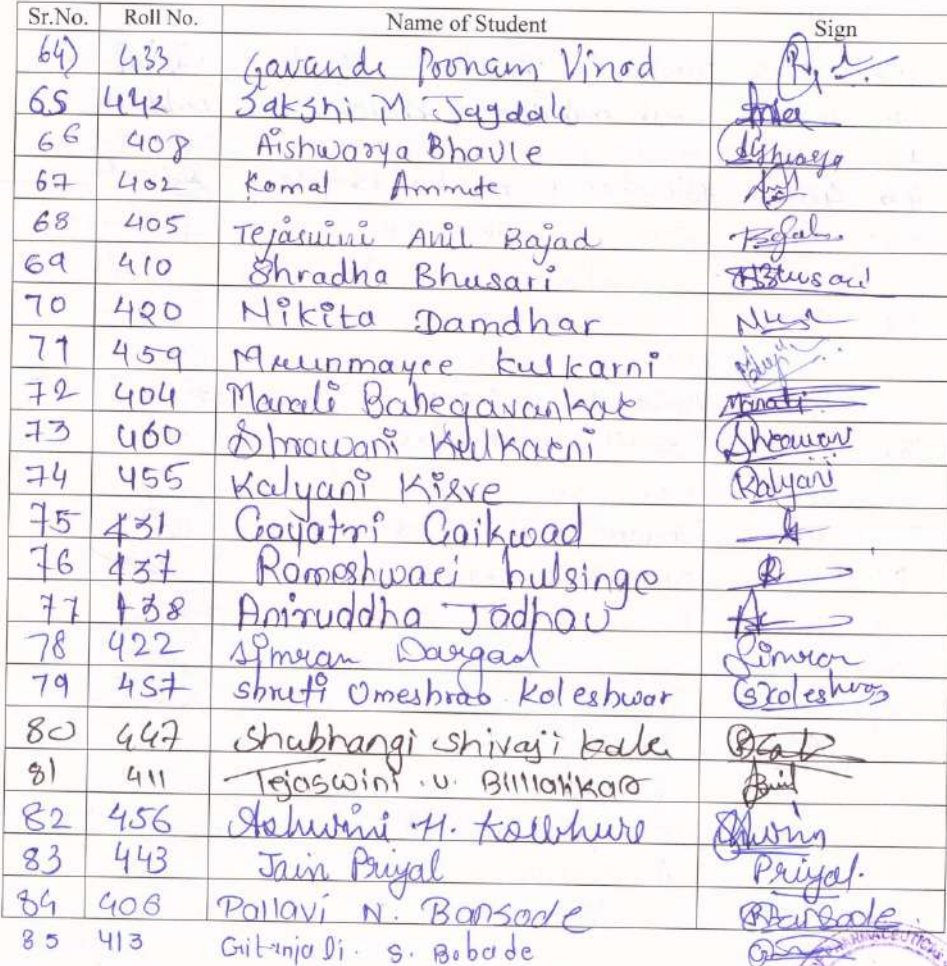 Sr.No. Roll No. Name of Student Sign
64) 433 Gavande Poonam Vinod
65 442 Sakshi M. Jagdale
66 408 Aishwarya Bhavle Aishwarya
67 402 Komal Ammute
68 405 Tejaswini Anil Bajad
69 410 Shradha Bhusari Bhusari
70 420 Nikita Damdhar
71 459 Mrunmayee Kulkarni
72 404 Manali Bahegavankar Manali
73 460 Shrawani Kulkarni Shrawani
74 455 Kalyani Kisve Kalyani
75 431 Gayatri Gaikwad
76 437 Rameshwari hulsinge
77 438 Aniruddha Jadhav
78 422 Simran Dargad Simran
79 457 Shruti Omeshrao Koleshwar SKoleshwar
80 447 Shubhangi Shivaji kale
81 411 Tejaswini U.
82 456 Ashwini H. Kolbhure Ashwini
83 443 Jain Priyal Priyal.
84 406 Pallavi N. Bansode PBansode
85 413 Gitanjali. S. Bobade